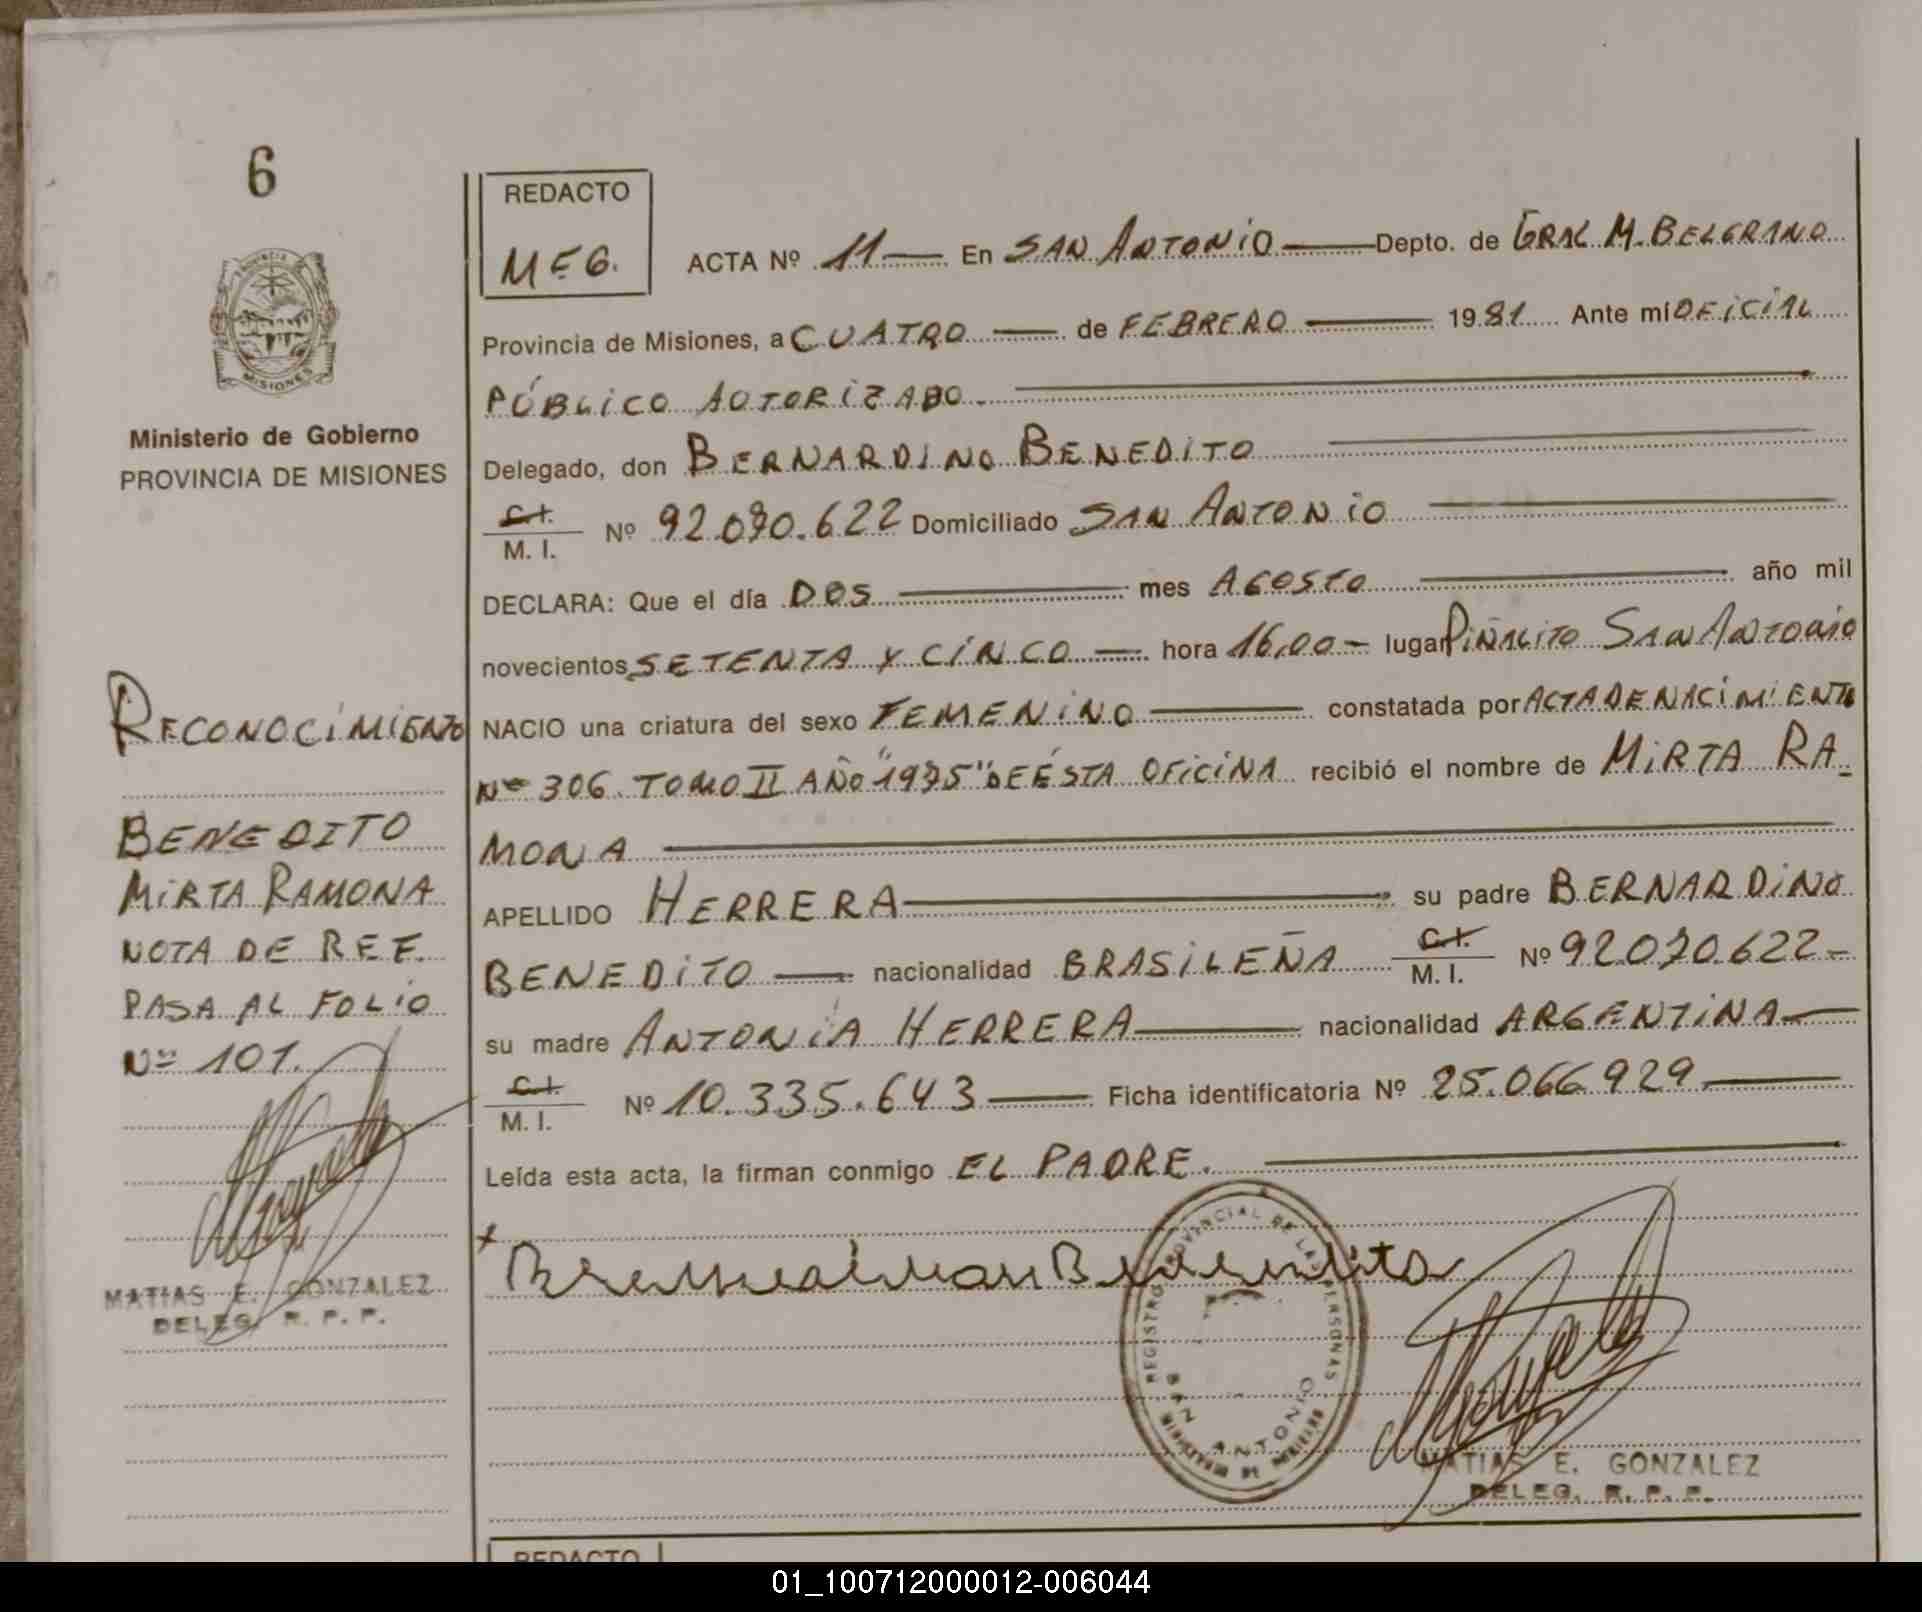 6
PROVINCIA DE
MISIONES
Ministerio de Gobierno
PROVINCIA DE MISIONES
RECONOCIMIENTO
BENEDITO
MIRTA RAMONA
NOTA DE REF.
PASA AL FOLIO
Nº 101.
MATIAS E. GONZALEZ
DELEG. R. P. P.
REDACTO
M E G.
ACTA Nº 11 En SAN ANTONIO Depto. de GRAL M. BELGRANO
Provincia de Misiones, a CUATRO de FEBRERO 1981 Ante mí OFICIAL
PÚBLICO AUTORIZADO.
Delegado, don BERNARDINO BENEDITO
C.I.
M. I. Nº 92.070.622 Domiciliado SAN ANTONIO
DECLARA: Que el día DOS mes AGOSTO año mil
novecientos SETENTA Y CINCO hora 16,00 lugar PIÑALITO SAN ANTONIO
NACIO una criatura del sexo FEMENINO constatada por ACTA DE NACIMIENTO
Nº 306. TOMO II AÑO "1975" DE ÉSTA OFICINA recibió el nombre de MIRTA RA-
MONA
APELLIDO HERRERA su padre BERNARDINO
BENEDITO nacionalidad BRASILEÑA C.I. M. I. Nº 92.070.622-
su madre ANTONIA HERRERA nacionalidad ARGENTINA
C.I.
M. I. Nº 10.335.643 Ficha identificatoria Nº 25.066.929
Leída esta acta, la firman conmigo EL PADRE.
REGISTRO PROVINCIAL DE LAS PERSONAS
SAN ANTONIO
MATIAS E. GONZALEZ
DELEG. R. P. P.
REDACTO
01_100712000012-006044